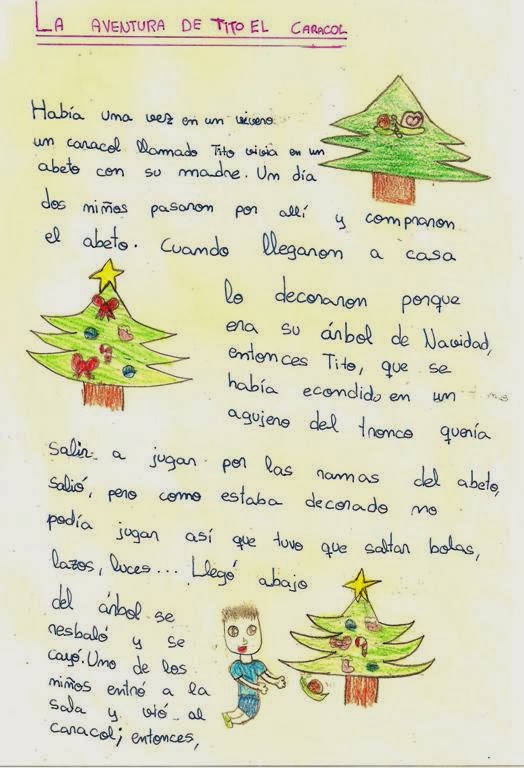 LA AVENTURA DE TITO EL CARACOL
Había una vez en un vivero
un caracol llamado Tito vivia en un
abeto con su madre. Un día
dos niños pasaron por allí y compraron
el abeto. Cuando llegaron a casa
lo decoraron porque
era su árbol de Navidad,
entonces Tito, que se
había econdido en un
agujero del tronco quería
salir a jugar por las ramas del abeto,
salió, pero como estaba decorado no
podía jugar así que tuvo que saltar bolas,
lazos, luces... Llegó abajo
del árbol se
resbaló y se
cayó. Uno de los
niños entró a la
sala y vió al
caracol; entonces,